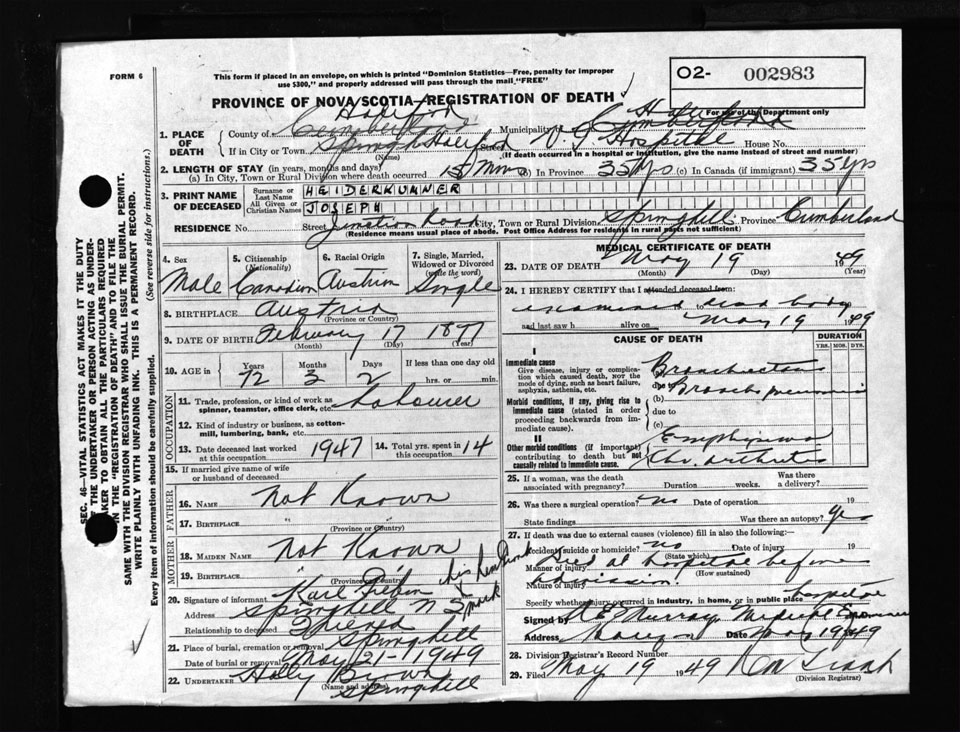 FORM 6
This form if placed in an envelope, on which is printed "Dominion Statistics—Free, penalty for improper
use $300," and properly addressed will pass through the mail "FREE"
O2- 002983
For use of the Department only
PROVINCE OF NOVA SCOTIA—REGISTRATION OF DEATH
1. PLACE OF DEATH
County of Cumberland Halifax Municipality of Cumberland
If in City or Town Springhill Halifax Street V. G. Hospital House No.
(Name) (If death occurred in a hospital or institution, give the name instead of street and number)
2. LENGTH OF STAY (in years, months and days)
(a) In City, Town or Rural Division where death occurred (b) In Province 35 yrs (c) In Canada (if immigrant) 35 yrs
3. PRINT NAME OF DECEASED
Surname or Last Name HEIDERKUMMER
All Given or Christian Names JOSEPH
RESIDENCE No. Street Junction Road City, Town or Rural Division Springhill Province Cumberland
(Residence means usual place of abode. Post Office Address for residents in rural parts not sufficient)
4. Sex Male
5. Citizenship (Nationality) Canadian
6. Racial Origin Austrian
7. Single, Married, Widowed or Divorced (write the word) Single
8. BIRTHPLACE Austria
(Province or Country)
9. DATE OF BIRTH February 17 1877
(Month) (Day) (Year)
10. AGE in Years 72 Months 3 Days 2 If less than one day old hrs. or min.
OCCUPATION
11. Trade, profession, or kind of work as spinner, teamster, office clerk, etc. Labourer
12. Kind of industry or business, as cotton-mill, lumbering, bank, etc.
13. Date deceased last worked at this occupation 1947
14. Total yrs. spent in this occupation 14
15. If married give name of wife or husband of deceased
FATHER
16. NAME Not Known
17. BIRTHPLACE " "
(Province or Country)
MOTHER
18. MAIDEN NAME Not Known
19. BIRTHPLACE " "
(Province or Country)
20. Signature of informant Karl
Address Springhill N S
Relationship to deceased Friend
21. Place of burial, cremation or removal Springhill
Date of burial or removal May 21-1949
22. UNDERTAKER Brown
(Name and address) Springhill
MEDICAL CERTIFICATE OF DEATH
23. DATE OF DEATH May 19 1949
(Month) (Day) (Year)
24. I HEREBY CERTIFY that I attended deceased from:
examined dead body 1949
and last saw h alive on May 19 1949
CAUSE OF DEATH
DURATION
YRS. MOS. DYS.
I
Immediate cause
Give disease, injury or complication which caused death, NOT the mode of dying, such as heart failure, asphyxia, asthenia, etc.
(a) Bronchiectasis
due to
Morbid conditions, if any, giving rise to immediate cause (stated in order proceeding backwards from immediate).
(b) Broncho pneumonia
due to
(c)
II
Other morbid conditions (if important) contributing to death but not causally related to immediate cause.
Emphysema
Chr. arthritis
25. If a woman, was the death associated with pregnancy? Duration weeks. Was there a delivery?
26. Was there a surgical operation? no Date of operation 19
State findings Was there an autopsy? Yes
27. If death was due to external causes (violence) fill in also the following:
Accident, suicide or homicide? no Date of injury 19
(State which)
Manner of injury Died at hospital before
(How sustained)
Nature of injury admission.
Specify whether injury occurred in industry, in home, or in public place hospital
Signed by Murray Medical Examiner
Address Date May 19 1949
28. Division Registrar's Record Number
29. Filed May 19 1949
(Division Registrar)
SEC. 46—VITAL STATISTICS ACT MAKES IT THE DUTY
OF THE UNDERTAKER OR PERSON ACTING AS UNDER-
TAKER TO OBTAIN ALL THE PARTICULARS REQUIRED
IN THE "REGISTRATION OF DEATH" AND TO FILE THE
SAME WITH THE DIVISION REGISTRAR WHO SHALL ISSUE THE BURIAL PERMIT.
WRITE PLAINLY WITH UNFADING INK. THIS IS A PERMANENT RECORD.
Every item of information should be carefully supplied. (See reverse side for instructions.)